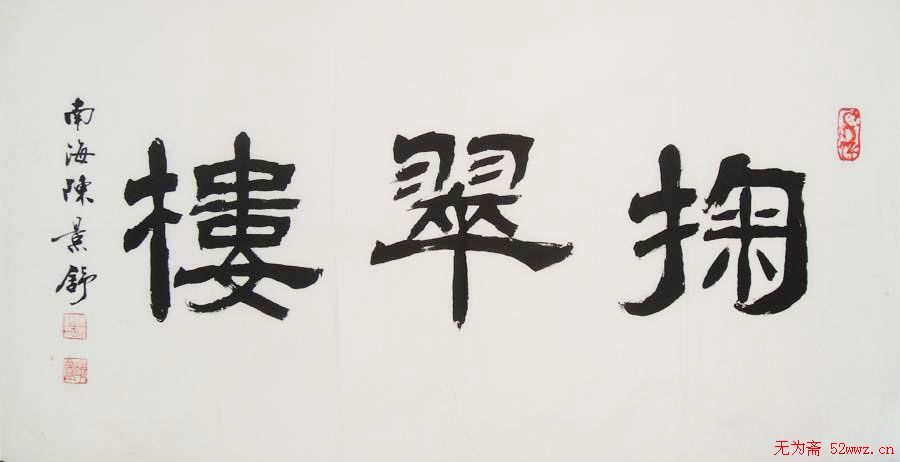 掬翠樓
南海陳景舒
无为斋 52wwz.cn